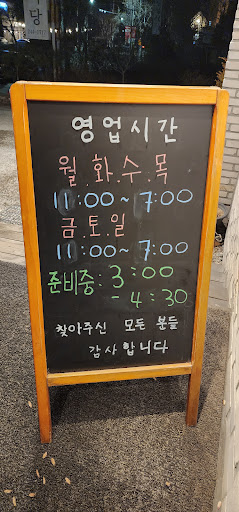 당
영업시간
월.화.수.목
11:00~7:00
금.토.일
11:00~7:00
준비중: 3:00
- 4:30
찾아주신 모든 분들
감사합니다